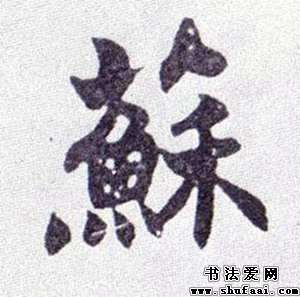 蘇
书法爱网
www.shufaai.com